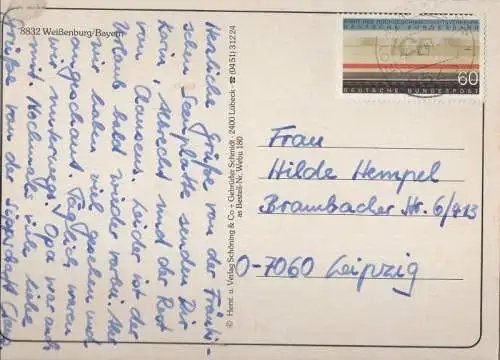 8832 Weißenburg/Bayern
Herzliche Grüße von der Fränki-
schen Seenplatte senden Dir
Karin, Albrecht und der Rest
von Clausens. Leider ist der
Urlaub bald wieder vorbei. Wir
haben viel gesehen und
angeschaut. Täglich waren
wir unterwegs. Opa war auch
mit. Nochmals viele liebe
Grüße von der
© Herst. u. Verlag Schöning & Co + Gebrüder Schmidt · 2400 Lübeck · ☎ (04 51) 3 12 24
as Bestell-Nr. Webu 180
60
DEUTSCHE BUNDESPOST
Frau
Hilde Hempel
Brambacher Str. 6/413
O-7060 Leipzig